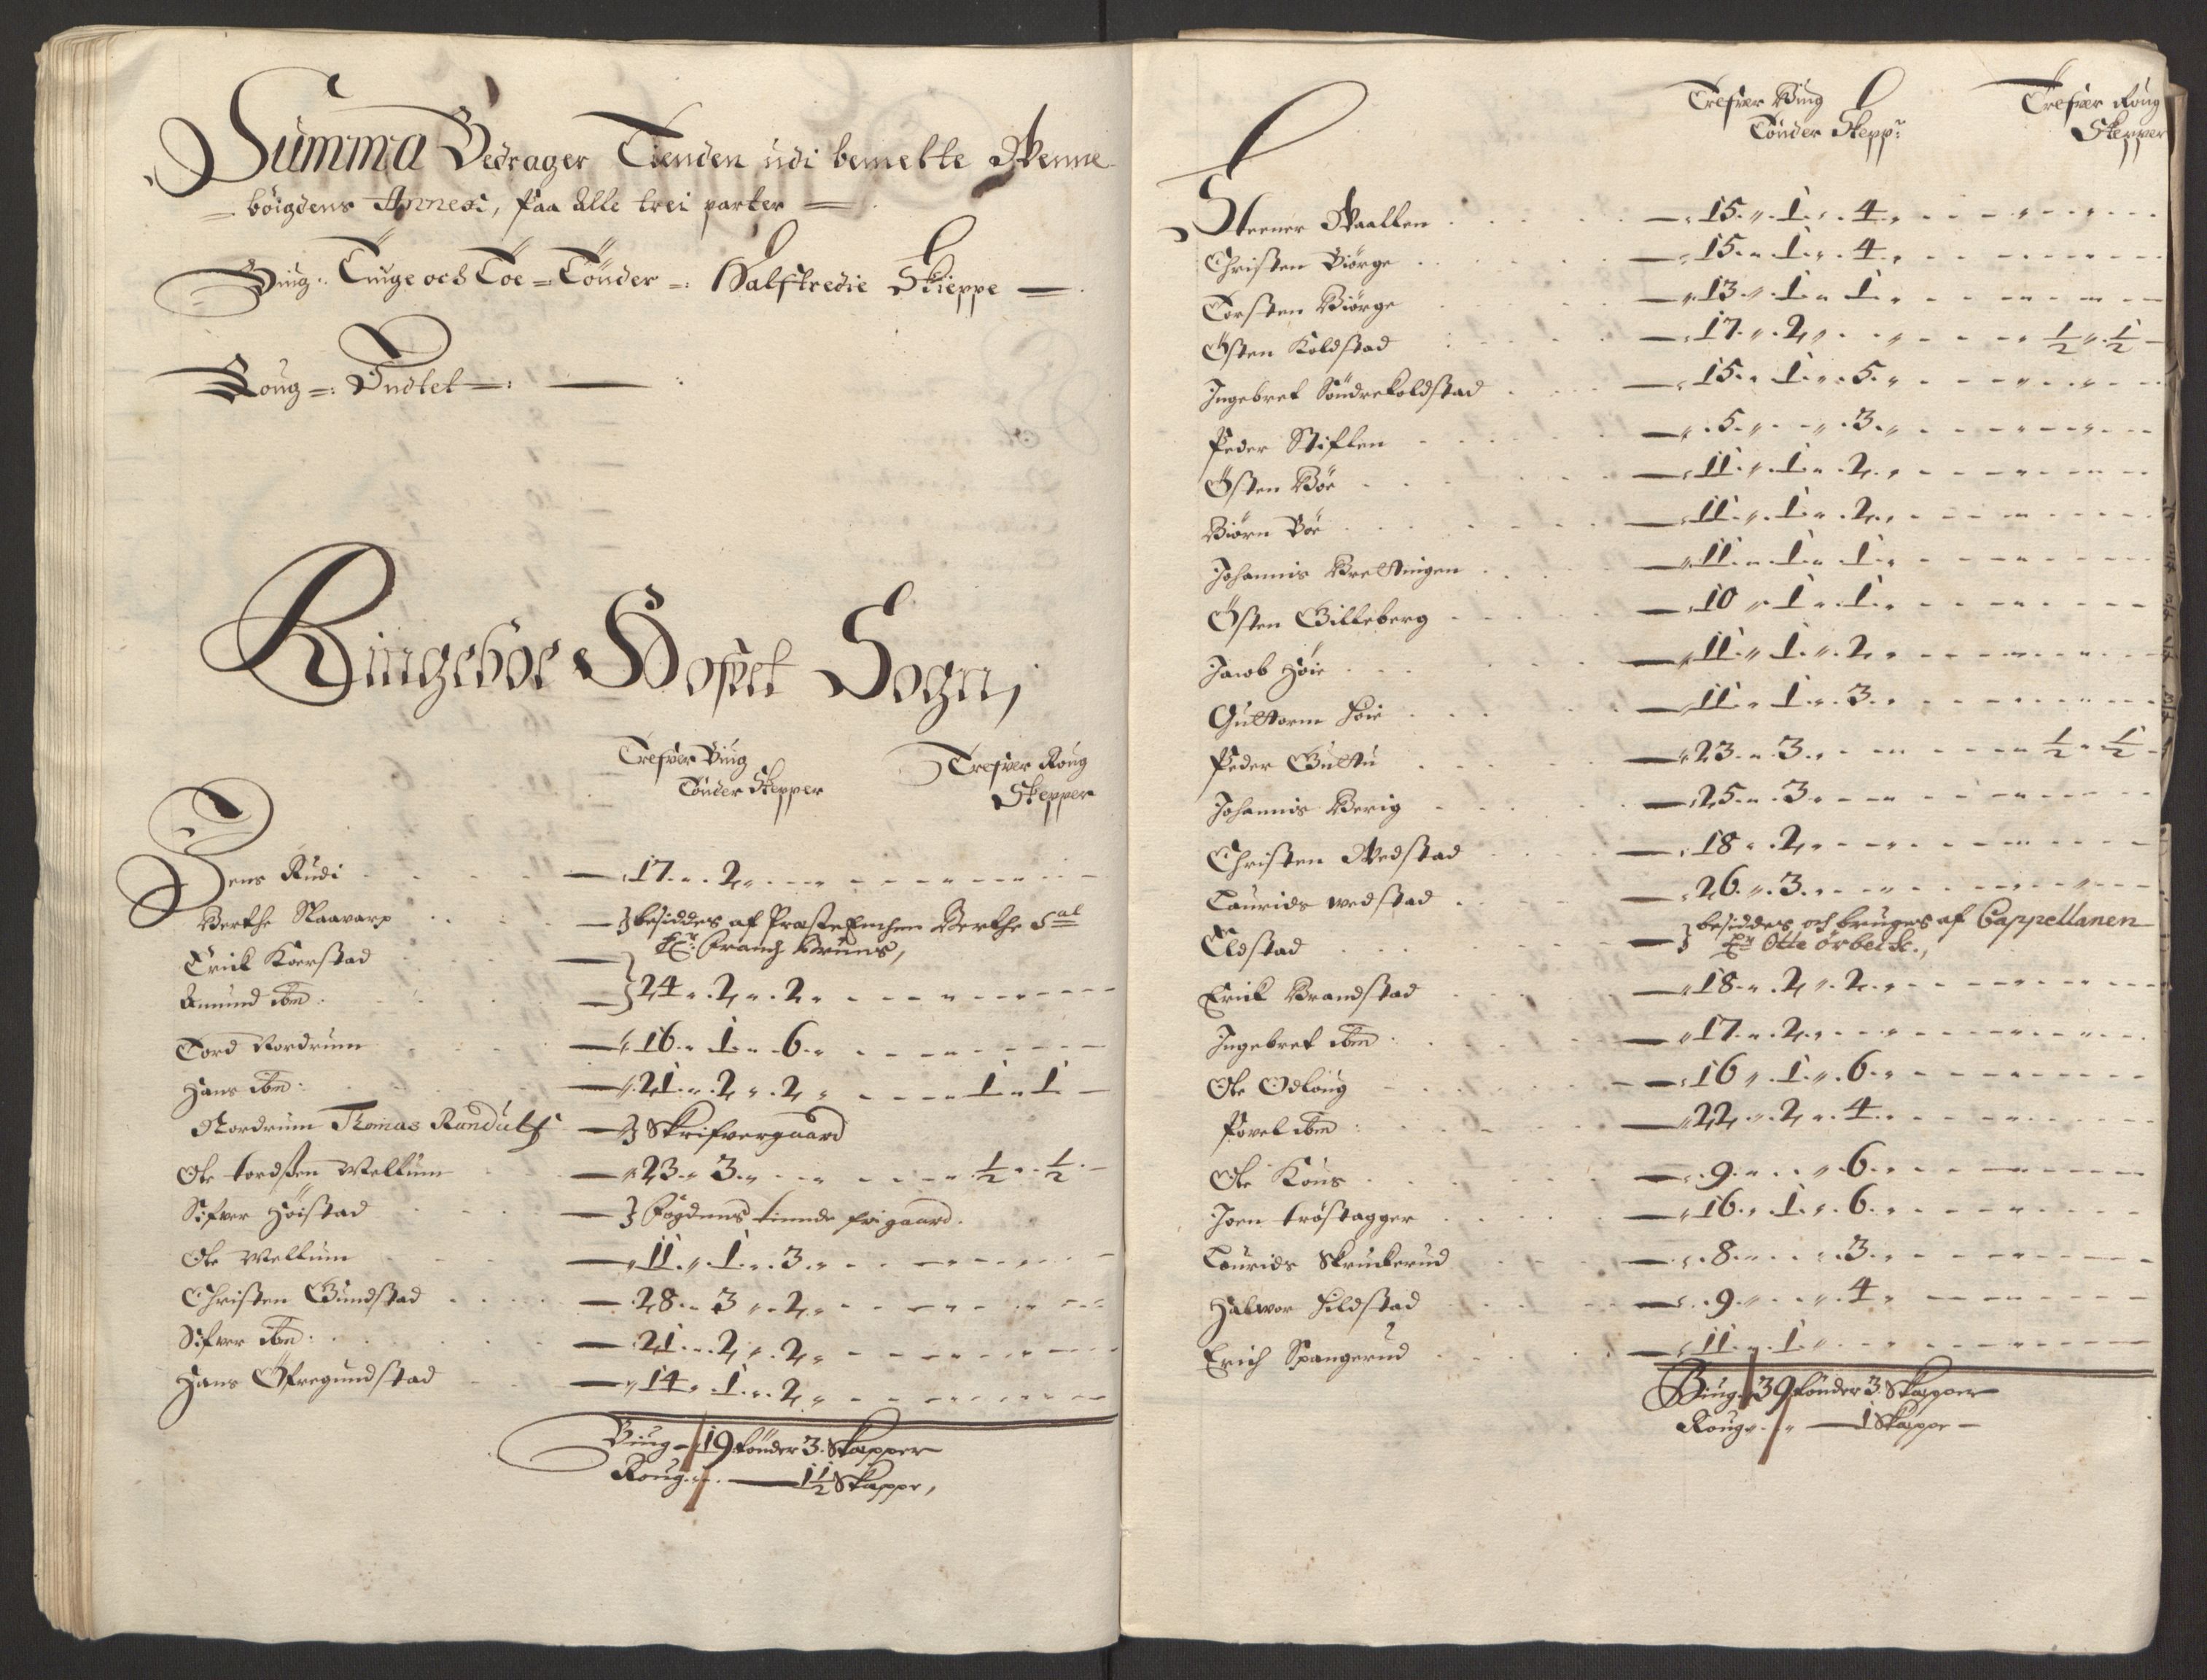 Summa Bedrager Tienden udi bemelte Wenne
bøigdens Annexi, Paa alle trei parter
Biug. Tiuge och Toe Tønder Halftredie Skieppe
Roug Indtet
Ringeboe Hofvet Sogn,
Trefver Biug Trefver Roug
Tønder Skepper Skepper
Jens Rudi 17. 2.
Berthe Skaavarp besiddes af Præste Enchen Berthe Sal
Hr: Frantz Bruns,
Erick Koerstad
Amund ibm 24. 2. 2.
Tord Nordrum 16. 1. 6.
Hans ibm: 21. 2. 2. 1. 1
Nordrum Thomas Randulf Skrifvergaard
Ole tordsen Wellum 23. 3. ½. ½.
Sifver Høistad Fogdens tiende frigaard.
Ole Wellum 11. 1. 3.
Christen Gundstad 28. 3. 2.
Sifver ibm: 21. 2. 2.
Hans Øfregundstad 14. 1. 2.
Biug 19 tønder 3. Skepper
Roug 1½ Skeppe,
Trefver Biug Trefver Roug
Tønder Skepp: Skepper
Steener Waallen 15. 1. 4.
Christen Biørge 15. 1. 4.
Torsten Biørge 13. 1. 1.
Østen Koldstad 17. 2. ½. ½
Ingebret Søndrekoldstad 15. 1. 5.
Peder Stiflen 5. 3.
Østen Bøe 11. 1. 2.
Biørn Bøe 11. 1. 2.
Johannis Brettingen 11. 1. 1.
Østen Gilleberg 10. 1. 1.
Jacob Høie 11. 1. 2.
Guttorm Høie 11. 1. 3.
Peder Guttu 23. 3. ½. ½
Johannis Berig 25. 3.
Christen Wedstad 18. 2.
Laurids wedstad 26. 3.
Eldstad besiddes och bruges af Cappellanen
Hr Otte ørbeck.,
Erick Brandstad 18. 2. 2.
Ingebret ibm: 17. 2.
Ole Odloug 16. 1. 6.
Povel ibm: 22. 2. 4.
Ole Kous 9. 6.
Joen trøstagger 16. 1. 6.
Laurids Skruckerud 8. 3.
Halvor Hildstad 9. 4.
Erich Spangerud 11. 1.
Biug 39 tønder 3. Skepper
Roug 1 Skeppe